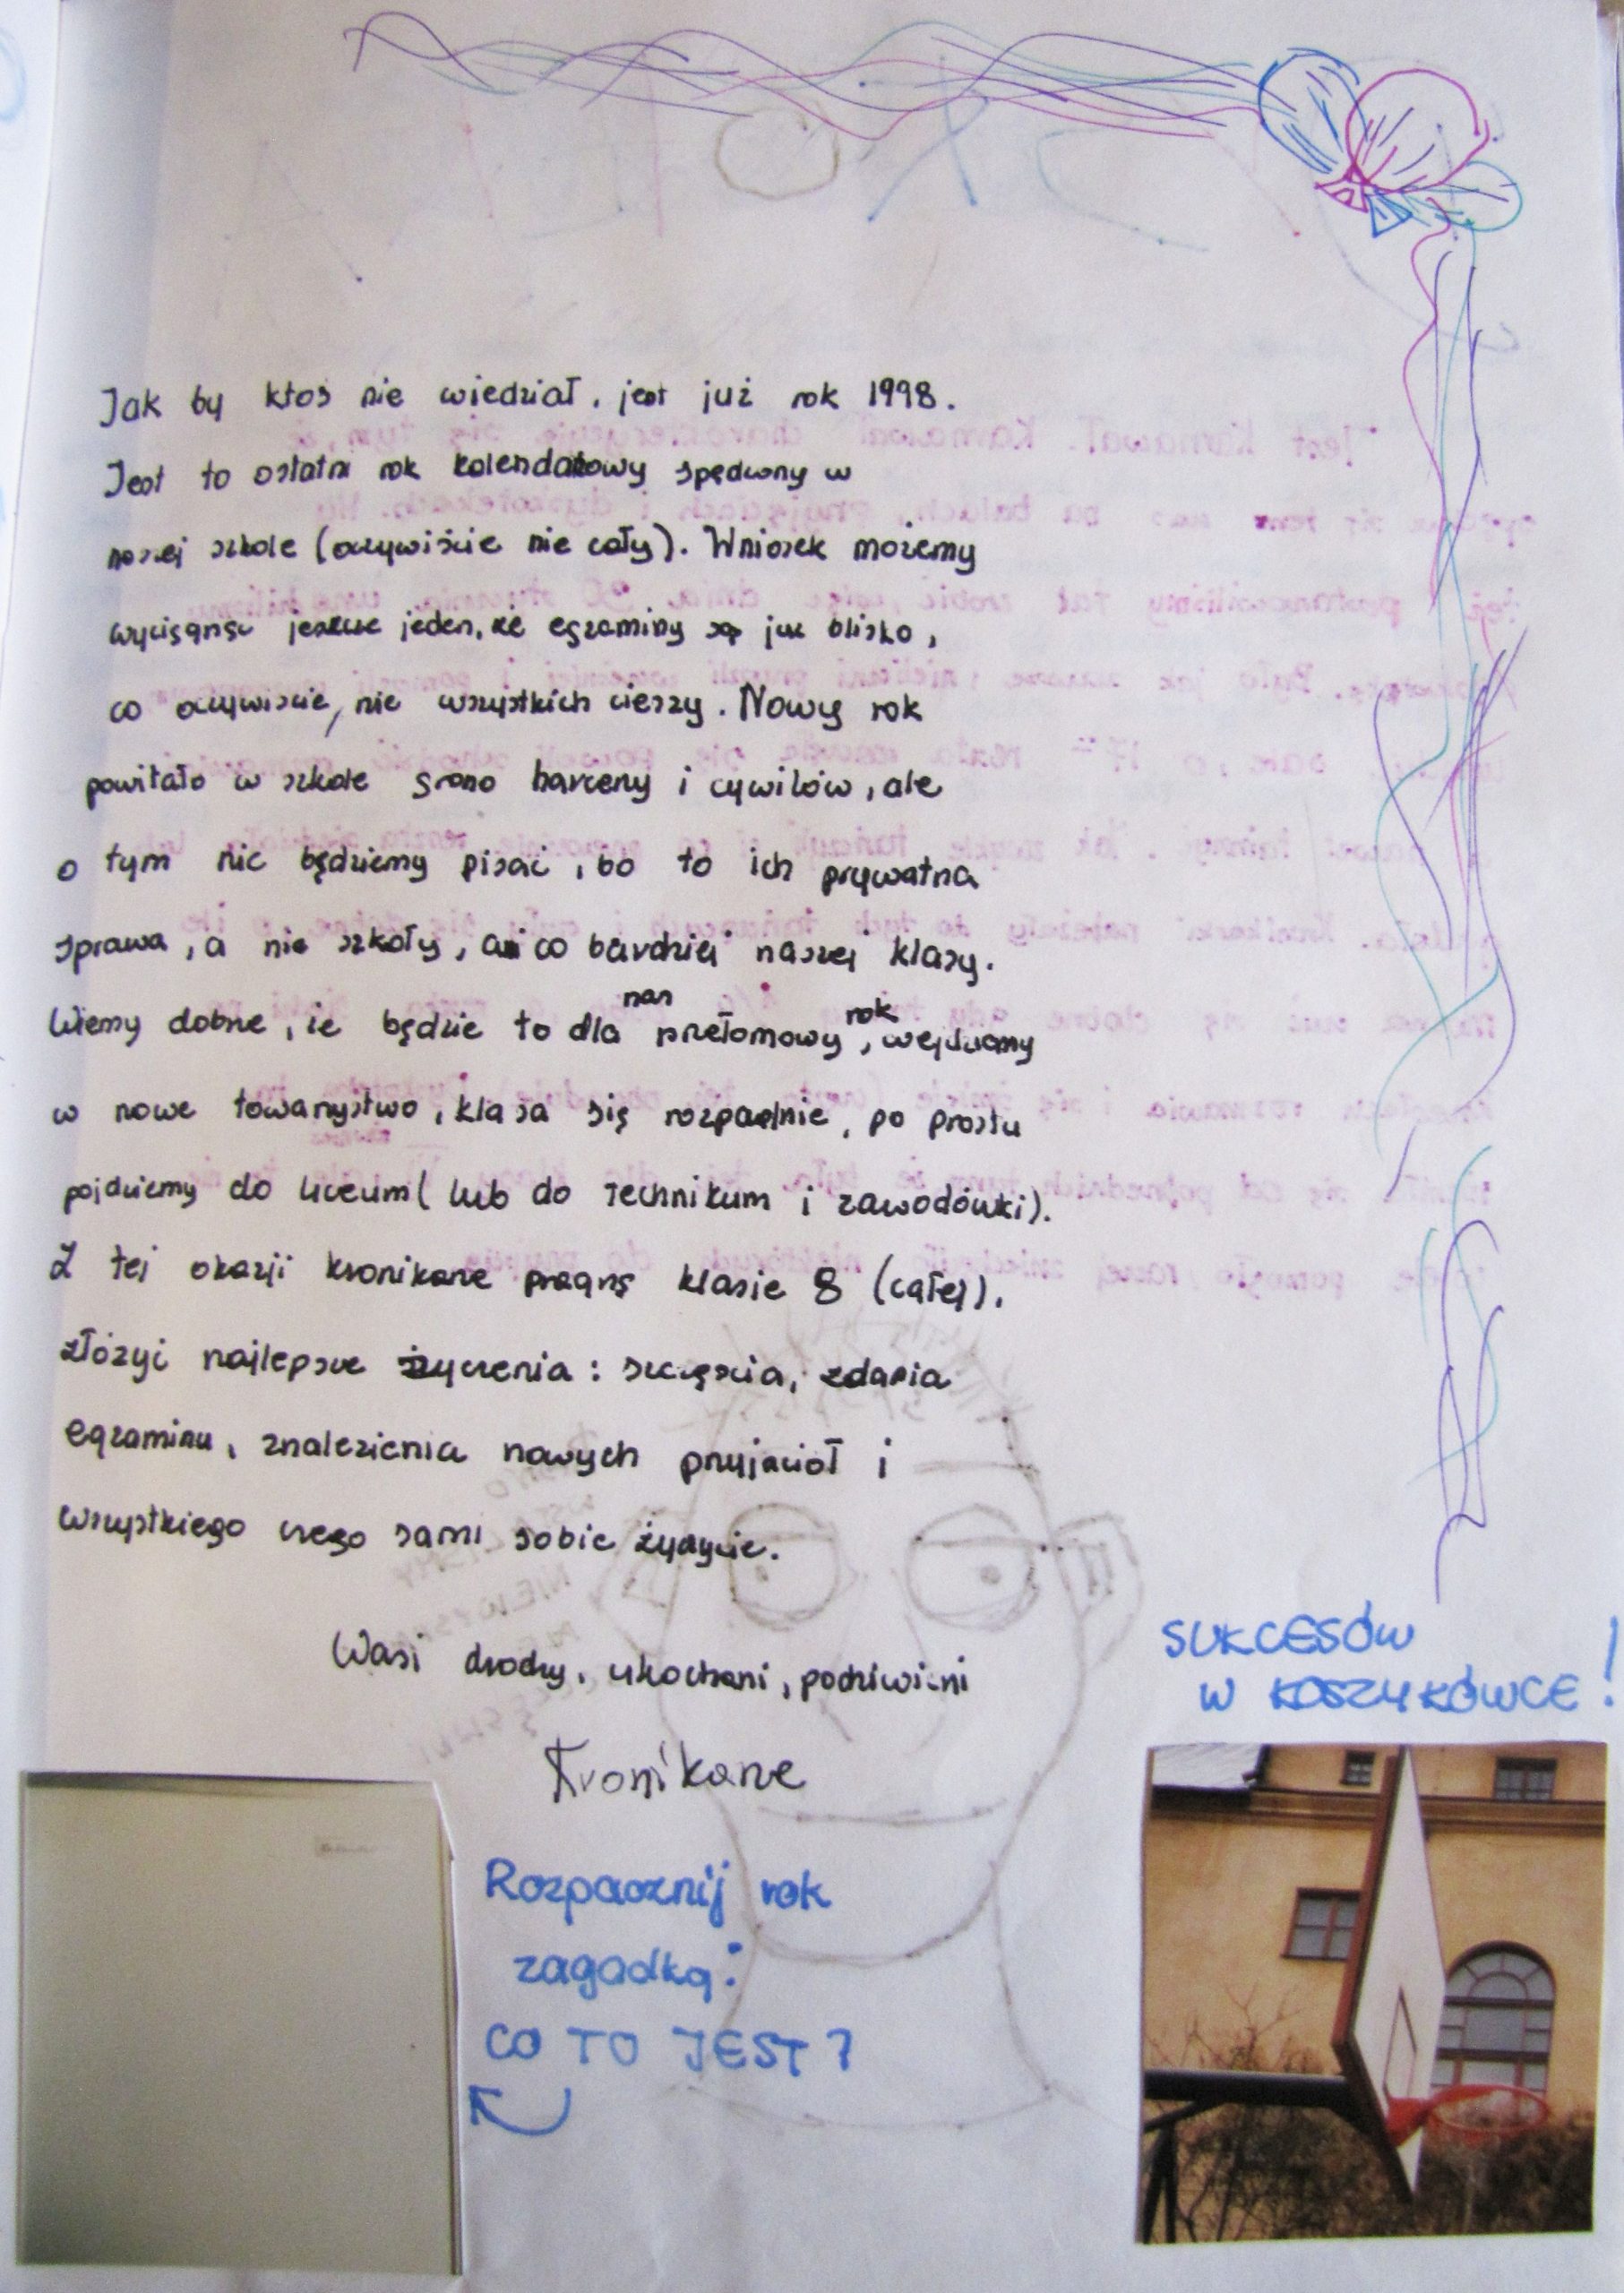 Jak by ktoś nie wiedział, jest już rok 1998.
Jest to ostatni rok kalendarzowy spędzony w
naszej szkole (oczywiście nie cały). Wniosek możemy
wyciągnąć jeszcze jeden, że egzaminy są już blisko,
co oczywiście, nie wszystkich cieszy. Nowy rok
powitało w szkole grono harcerzy i cywilów, ale
o tym nie będziemy pisać, bo to ich prywatna
sprawa, a nie szkoły, a co bardziej naszej klasy.
Wiemy dobrze, że będzie to dla nas przełomowy rok, wejdziemy
w nowe towarzystwo, klasa się rozpadnie, po prostu
pójdziemy do liceum (lub do technikum i zawodówki).
Z tej okazji kronikarze pragną klasie 8 (całej),
złożyć najlepsze życzenia: szczęścia, zdania
egzaminu, znalezienia nowych przyjaciół i
wszystkiego czego sami sobie życzycie.
Wasi drodzy, ukochani, podziwiani
Kronikarze
SUKCESÓW
W KOSZYKÓWCE!
Rozpocznij rok
zagadką:
CO TO JEST?